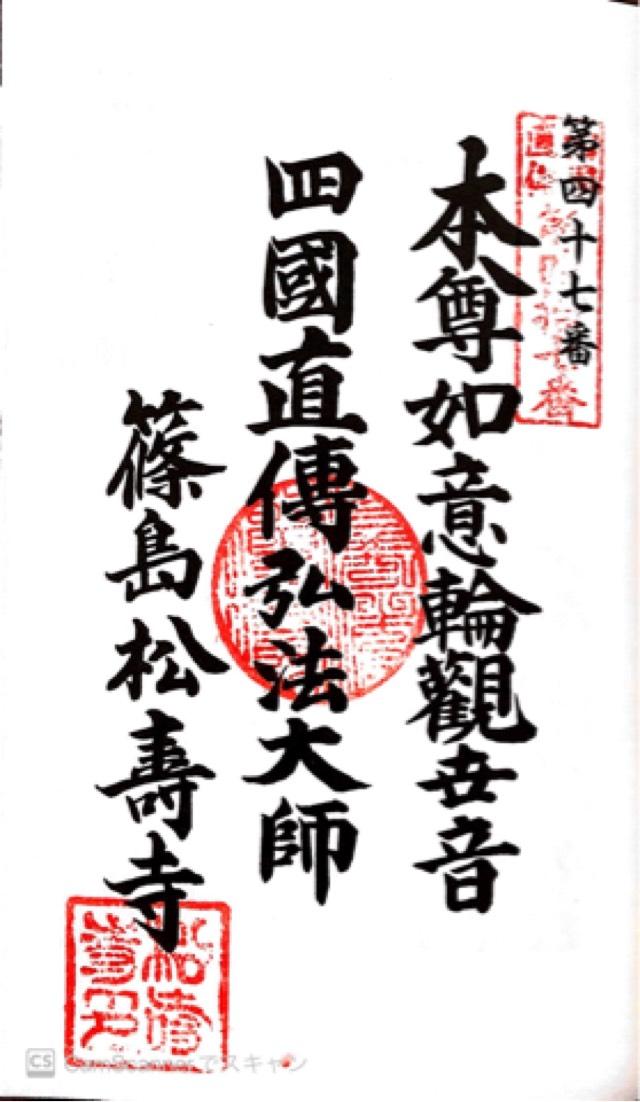 第四十七番
本尊如意輪觀世音
四國直傳弘法大師
篠島松壽寺
CS CamScannerでスキャン